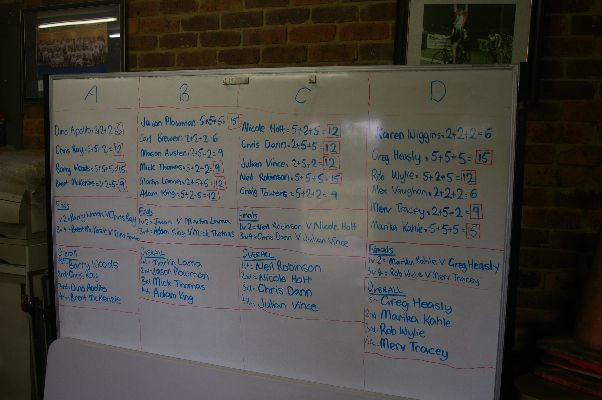 A
Dino Apollo = 2+2+2=
Chris Ray = 5+5+2= 12
Barry Woods = 5+5+5= 15
Brent McKenzie = 2+2+5= 9
Finals
1v2 = Barry Woods V Chris Ray
3v4 = Brent McKenzie V Dino Apollo
Overall
1st = Barry Woods
2nd = Chris Ray
3rd = Dino Apollo
4th = Brent McKenzie
B
Jason Plowman = 5+5+5= 15
Carl Brewer = 2+2+2=6
Mason Austen = 2+5+2=9
Mick Thomas = 5+2+2= 9
Martin Lama = 2+5+5= 12
Adam King = 5+2+5= 12
Finals
1v2 = Jason V Martin Lama
3v4 = Adam King V Mick Thomas
Overall
1st = Martin Lama
2nd = Jason Plowman
3rd = Mick Thomas
4th = Adam King
C
Nicole Holt = 5+2+5= 12
Chris Dann = 2+5+5= 12
Julian Vince = 5+2+5= 12
Neil Robinson = 5+5+5= 15
Craig Towers = 5+2+2= 9
Finals
1v2 = Neil Robinson V Nicole Holt
3v4 = Chris Dann V Julian Vince
Overall
1st = Neil Robinson
2nd = Nicole Holt
3rd = Chris Dann
4th = Julian Vince
D
Karen Wiggins = 2+2+2=6
Greg Heasly = 5+5+5= 15
Rob Wylie = 5+2+5= 12
Alex Vaughan = 2+2+2=6
Merv Tracey = 2+5+2= 9
Marika Kahle = 5+5+5=
Finals
1v2 = Marika Kahle V Greg Heasly
3v4 = Rob Wylie V Merv Tracey
Overall
1st = Greg Heasly
2nd = Marika Kahle
3rd = Rob Wylie
4th = Merv Tracey